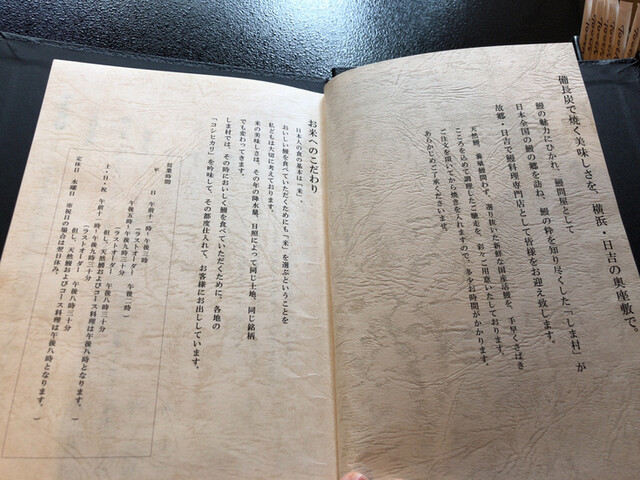 備長炭で焼く美味しさを、横浜・日吉の奥座敷で。
鰻の魅力にひかれ、鰻問屋として
日本全国の鰻の郷を訪ね、鰻の粋を知り尽くした「しま村」が
故郷・日吉で鰻料理専門店として皆様をお迎え致します。
天然鰻、養殖鰻問わず、選り抜いた新鮮な国産活鰻を、手早くさばき
こころを込めて調理したご馳走を、彩々ご用意いたしております。
ご注文を頂いてから焼きを入れますので、多少お時間がかかります。
あらかじめご了承くださいませ。
お米へのこだわり
日本人の食の基本は「米」。
おいしい鰻を食べていただくためにも「米」を選ぶということを
私どもは大切に考えております。
米の美味しさは、その年の降水量、日照によって同じ土地、同じ銘柄
でも変わってきます。
しま村では、その時においしく鰻を食べていただくために、各地の
「コシヒカリ」を吟味して、その都度仕入れて、お客様にお出ししています。
営業時間
平 日 午前十一時〜午後二時
(ラストオーダー 午後二時)
午後五時〜午後九時三十分
(ラストオーダー 午後八時三十分
但し、天然鰻およびコース料理は午後八時となります。)
土・日・祝 午前十一時〜午後九時三十分
(ラストオーダー 午後八時三十分
但し、天然鰻およびコース料理は午後八時となります。)
定休日 火曜日 ※祝日の場合は翌日休み。